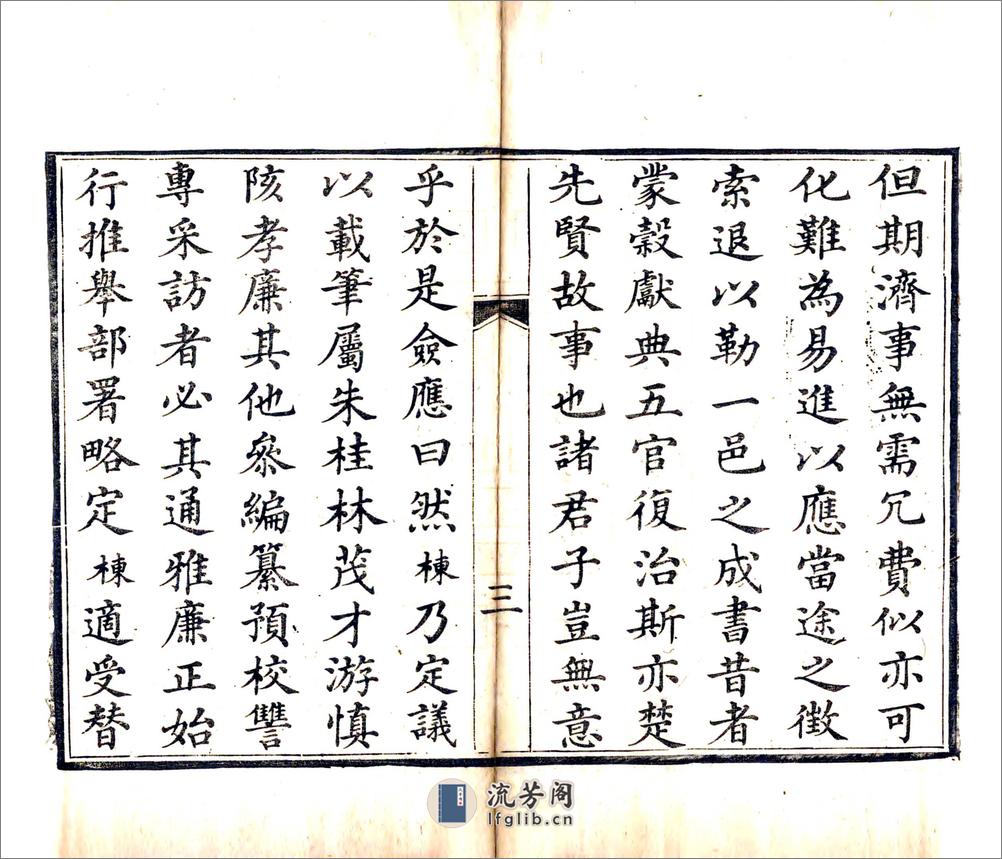 但期濟事無需冗費似亦可
化難為易進以應當途之徵
索退以勒一邑之成書昔者
蒙穀獻典五官復治斯亦楚
先賢故事也諸君子豈無意
三
乎於是僉應曰然棟乃定議
以載筆屬朱桂林茂才游慎
陔孝廉其他叅編纂預校讐
專采訪者必其通雅廉正始
行推舉部署略定棟適受替
流芳阁
lfglib.cn